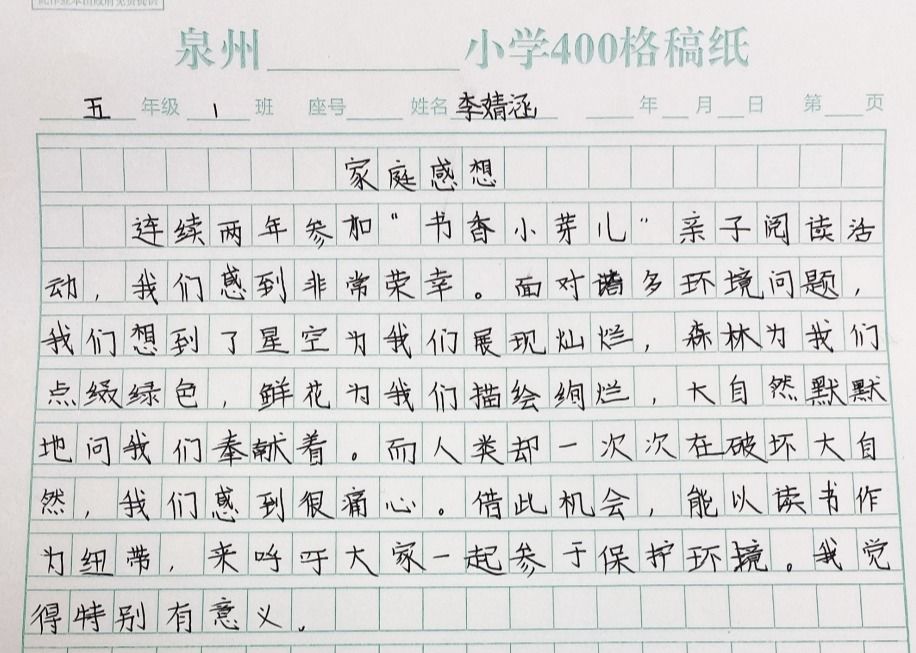 泉州 小学400格稿纸
五 年级 1 班 座号 姓名 李婧涵 年 月 日 第 页
家庭感想
连续两年参加“书香小芽儿”亲子阅读活
动,我们感到非常荣幸。面对诸多环境问题,
我们想到了星空为我们展现灿烂,森林为我们
点缀绿色,鲜花为我们描绘绚烂,大自然默默
地问我们奉献着。而人类却一次次在破坏大自
然,我们感到很痛心。借此机会,能以读书作
为纽带,来呼吁大家一起参于保护环境。我觉
得特别有意义.